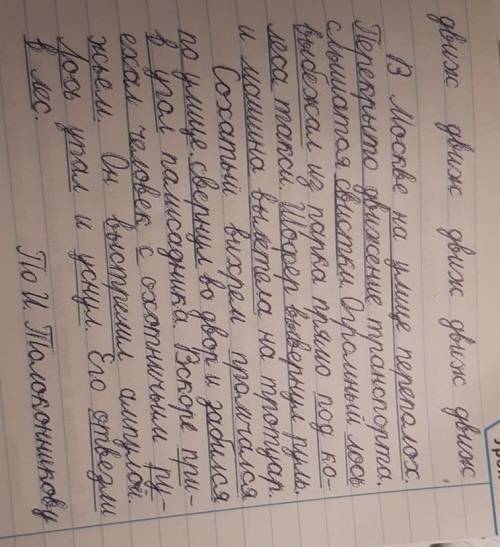 Урок
движ движ движ движ движ
В Москве на улице переполох.
Перекрыто движение транспорта.
Слышатся свистки. Огромный лось
выбежал из парка прямо под ко-
леса такси. Шофер вывернул руль.
и машина вылетела на тротуар.
Сохатый вихрем промчался
по улице, свернул во двор и забился
в угол палисадника. Вскоре при-
ехал человек с охотничьим ру-
жьем. Он выстрелил ампулой.
Лось упал и уснул. Его отвезли
в лес.
По И. Толоконникову